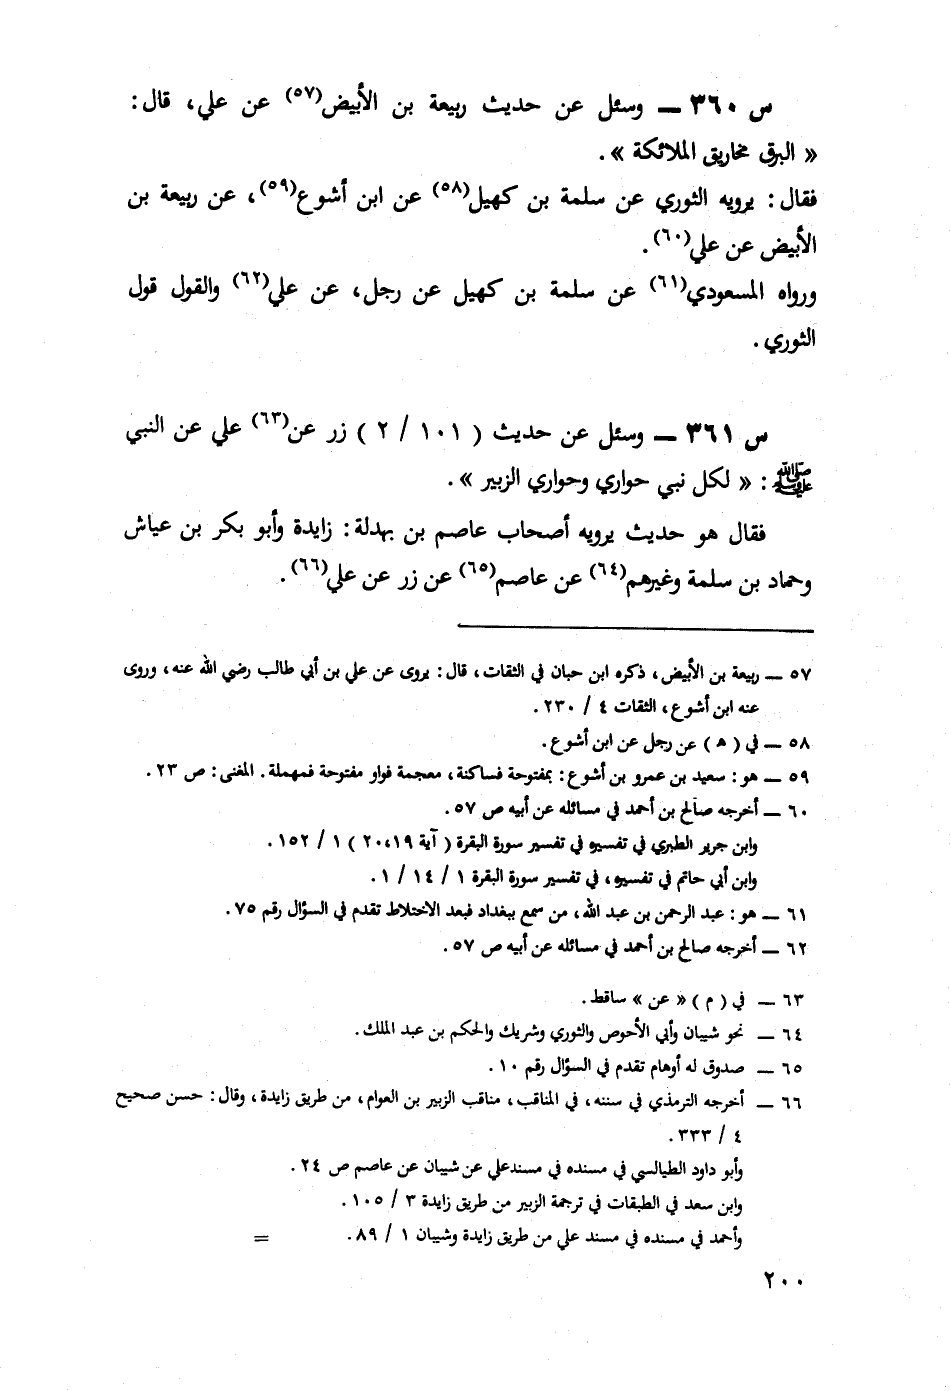 س ٣٦٠ ــ وسئل عن حديث ربيعة بن الأبيض(٥٧) عن علي، قال:
« البرق مخاريق الملائكة ».
فقال: يرويه الثوري عن سلمة بن كهيل(٥٨) عن ابن أشوع(٥٩)، عن ربيعة بن
الأبيض عن علي(٦٠).
ورواه المسعودي(٦١) عن سلمة بن كهيل عن رجل، عن علي(٦٢) والقول قول
الثوري.
س ٣٦١ ــ وسئل عن حديث ( ١٠١ / ٢ ) زر عن(٦٣) علي عن النبي
ﷺ: « لكل نبي حواري وحواري الزبير ».
فقال هو حديث يرويه أصحاب عاصم بن بهدلة: زايدة وأبو بكر بن عياش
وحماد بن سلمة وغيرهم(٦٤) عن عاصم(٦٥) عن زر عن علي(٦٦).
٥٧ ــ ربيعة بن الأبيض، ذكره ابن حبان في الثقات، قال: يروى عن علي بن أبي طالب رضي الله عنه، وروى
عنه ابن أشوع، الثقات ٤ / ٢٣٠.
٥٨ ــ في ( هـ ) عن رجل عن ابن أشوع.
٥٩ ــ هو: سعيد بن عمرو بن أشوع: بمفتوحة فساكنة، معجمة فواو مفتوحة فمهملة. المغنى: ص ٢٣.
٦٠ ــ أخرجه صالح بن أحمد في مسائله عن أبيه ص ٥٧.
وابن جرير الطبري في تفسيره في تفسير سورة البقرة ( آية ١٩، ٢٠ ) ١ / ١٥٢.
وابن أبي حاتم في تفسيره، في تفسير سورة البقرة ١ / ١٤ / ١.
٦١ ــ هو: عبد الرحمن بن عبد الله، من سمع ببغداد فبعد الاختلاط تقدم في السؤال رقم ٧٥.
٦٢ ــ أخرجه صالح بن أحمد في مسائله عن أبيه ص ٥٧.
٦٣ ــ في ( م ) « عن » ساقط.
٦٤ ــ نحو شيبان وأبي الأحوص والثوري وشريك والحكم بن عبد الملك.
٦٥ ــ صدوق له أوهام تقدم في السؤال رقم ١٠.
٦٦ ــ أخرجه الترمذي في سننه، في المناقب، مناقب الزبير بن العوام، من طريق زايدة، وقال: حسن صحيح
٤ / ٣٣٣.
وأبو داود الطيالسي في مسنده في مسندعلي عن شيبان عن عاصم ص ٢٤.
وابن سعد في الطبقات في ترجمة الزبير من طريق زايدة ٣ / ١٠٥.
وأحمد في مسنده في مسند علي من طريق زايدة وشيبان ١ / ٨٩. =
٢٠٠